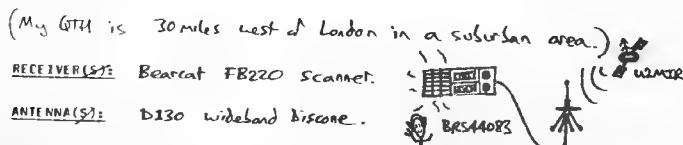 (My QTH is 30 miles west of London in a suburban area.)
RECEIVER(S): Bearcat FB220 Scanner.
U2MIR
ANTENNA(S): D130 wideband Discone.
BRS44083